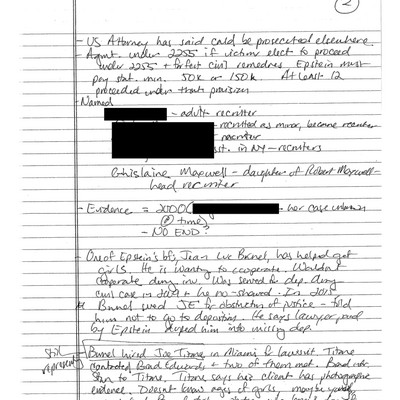 2
- US Attorney has said could be prosecuted elsewhere
- Agmt. under 2255 if victim elect to proceed
under 2255 + forfeit civil remedies Epstein must
pay stat. min. 50k or 150k At least 12
proceeded under that provision
- Named
- adult recruiter
- recruited as minor, became recruiter
- recruiter
in NY - recruiters
Ghislaine Maxwell - daughter of Robert Maxwell -
head recruiter
- Evidence = 2000 ( - her case unknown
@ time)
- NO END?
- One of Epstein's bf, Jean Luc Brunel, has helped get
girls. He is wanting to cooperate. Wouldn't
cooperate during inv. Was served for dep. during
civil case in 2009 + he no-showed. In 2015
Brunel sued JE for obstruction of justice - told
him not to go to deposition. He says lawyer paid
by Epstein helped him into missing dep.
still
Brunel hired Joe Titone in Miami to lawsuit. Titone
contacted Brad Edwards + two of them met. Brad
to Titone, Titone says his client has photographic
evidence. Doesn't know ages of girls - maybe